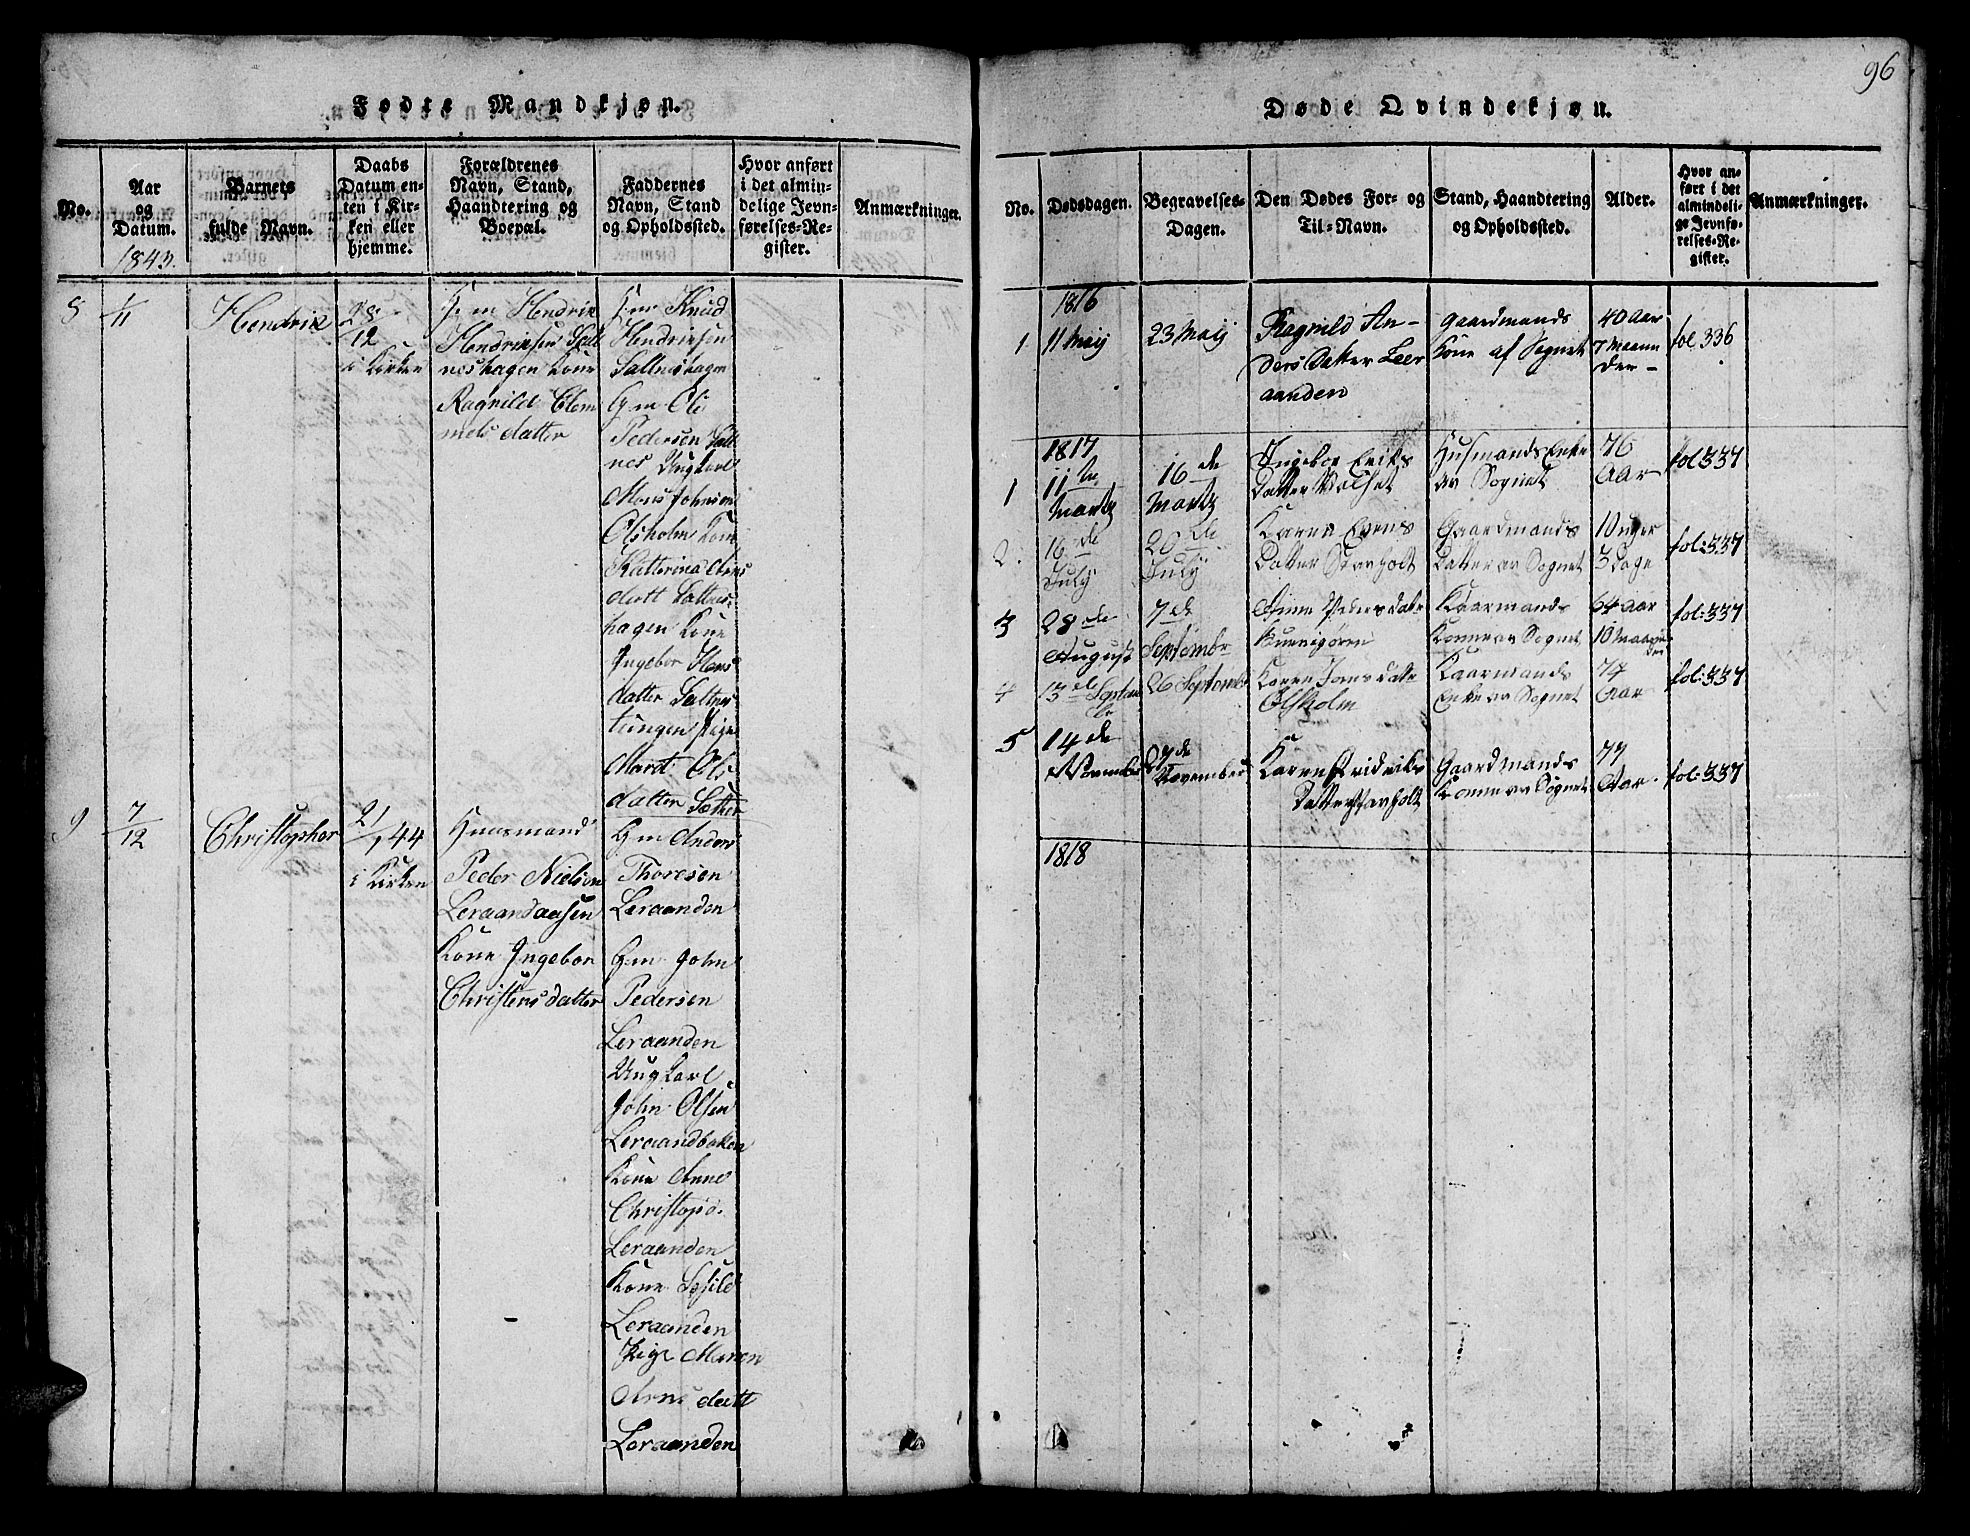 Fødte Mandkjøn.
No.
Aar
og
Datum.
1843.
Barnets
fulde Navn.
Daabs
Datum en-
ten i Kir-
ken eller
hjemme.
Forældrenes
Navn, Stand,
Haandtering og
Boepæl.
Faddernes
Navn, Stand
og Opholdssted.
Hvor anført
i det almin-
delige Jevn-
førelses-Re-
gister.
Anmærkninger.
8
1/11
Hendrik
28
12
i Kirken
G. m Hendrik
Hendriksen Salt
neshagen Kone
Ragnild Clem
mets datter
G. m Knud
Hendriksen
Saltneshagen
G. m Ole
Pedersen Salt
nes Ungkarl
Mons Johnsen
Olsholm Kone
Katterina Arns
datt Saltnes
hagen Kone
Ingebor Hans
datter Saltnes
tungen Pige
Maret Ols
datter Sætter
9
7/12
Christopher
21/1 44
i Kirken
Huusmand
Peder Nielsen
Leraandaasen
Kone Ingebor
Christens datter
G. m Anders
Thoresen
Leraanden
G. m John
Pedersen
Leraanden
Ungkarl
John Olsen
Leraandbaken
Kone Anne
Christopd.
Leraanden
Kone Sesild
Leraanden
Pige Maren
Arns datt
Leraanden
96
Døde Qvindekjøn.
No.
Dødsdagen.
Begravelses-
Dagen.
Den Dødes For- og
Til-Navn.
Stand, Haandtering
og Opholdssted.
Alder.
Hvor an-
ført i det
almindeli-
ge Jevnfø-
relses-Re-
gister.
Anmærkninger.
1816
1
11 Maij
23 Maij
Ragnild An-
dersdatter Leer
aanden
Gaardmands
Kone af Sognet
40 Aar
7 Maane
der
fol 336
1817
1
11te
Martz
16de
Martz
Ingebor Eriks
Datter Volset
Husmands Enke
av Sognet
76
Aar
fol:337
2.
16de
July
20de
July
Karen Evens
Datter Stavholt
Gaardmands
Datter av Sognet
10 uger
3 Dage
fol:337
3
28de
August
7de
Septembr
Anne Peders datr
Kaarmands
Konne av Sognet
64 Aar
10 Maane
der
fol:337
4
13de Septem
br
26 Septembr
Karen Jons datr
Olsholm
Kaarmands
Enke av Sognet
74
Aar
fol:337
5
14de
November
27de
November
Karen Fridriks
Datter Stavholt
Gaardmands
Konne av Sognet
77
Aar.
fol:337
1818